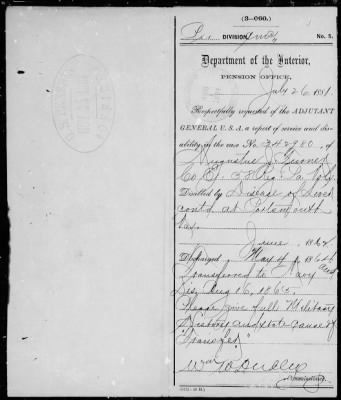 (3-060.)
DIVISION, No. 1.
Department of the Interior,
PENSION OFFICE,
July 26, 1881.
Respectfully requested of the ADJUTANT
GENERAL U.S.A. a report of service and dis-
ability in the case No. 342980, of
Augustus J.
Co. Reg. Pa. Vols.
Disabled by Disease of Liver
contd at Portsmouth
Va.
June 1862
Discharged May 4, 1864 and
transferred to Navy
Dis. Aug 16, 1865.
Please give full Military
History and state cause of
"Transfer."
Wm W Dudley
Commissioner.